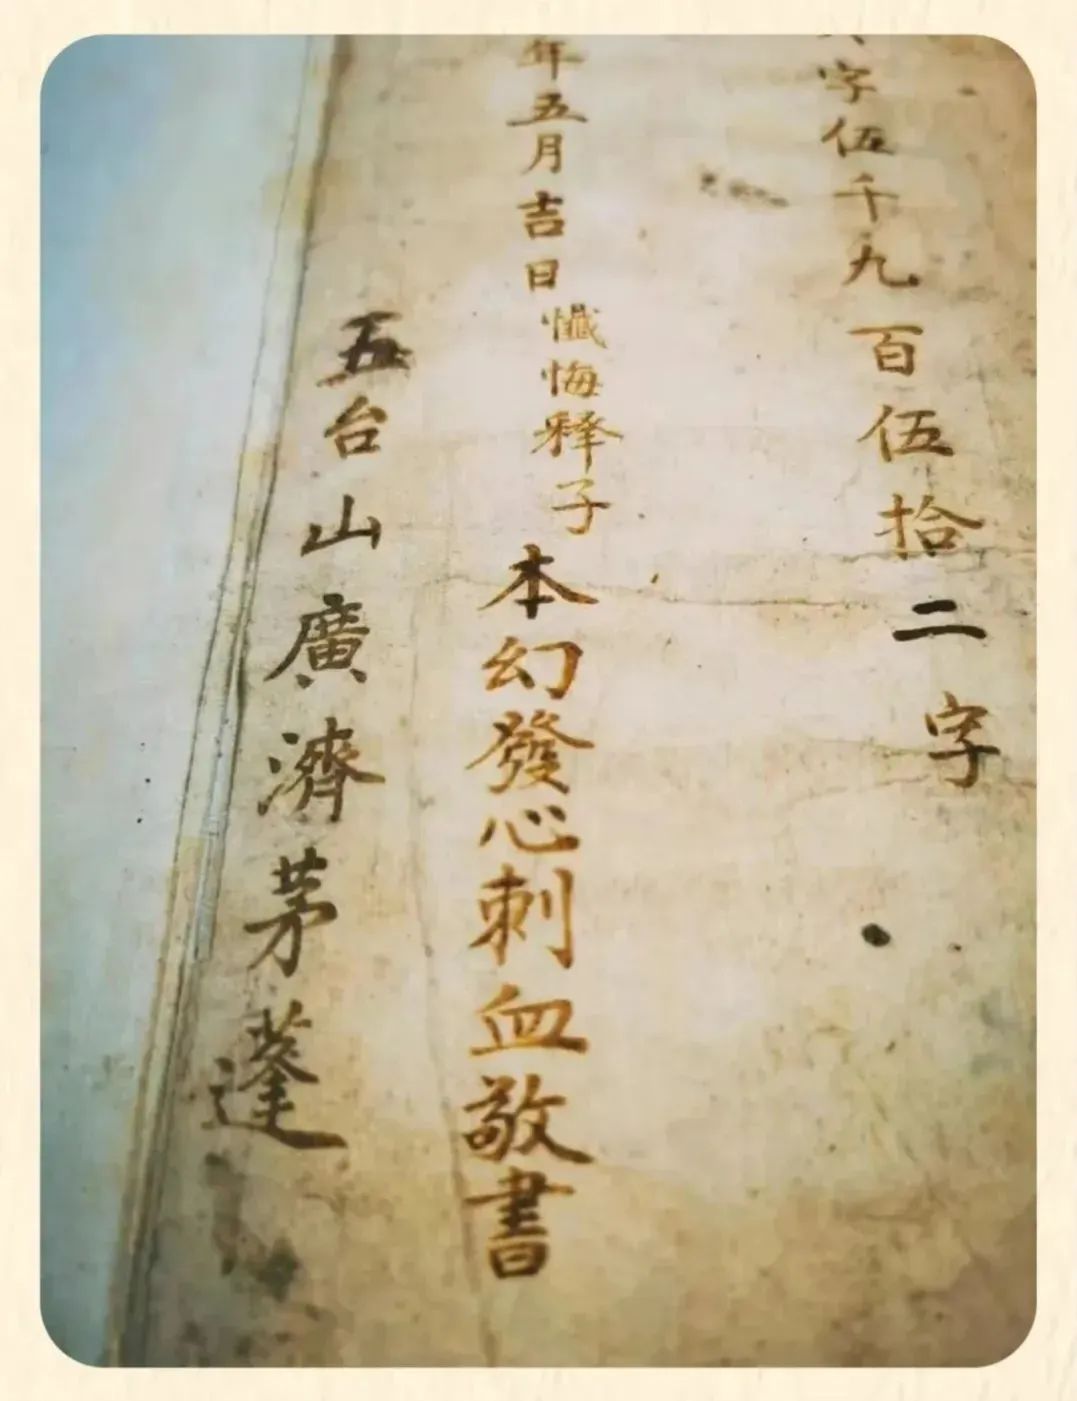 字伍千九百伍拾二字
年五月吉日懺悔释子本幻發心刺血敬書
五台山廣濟茅蓬